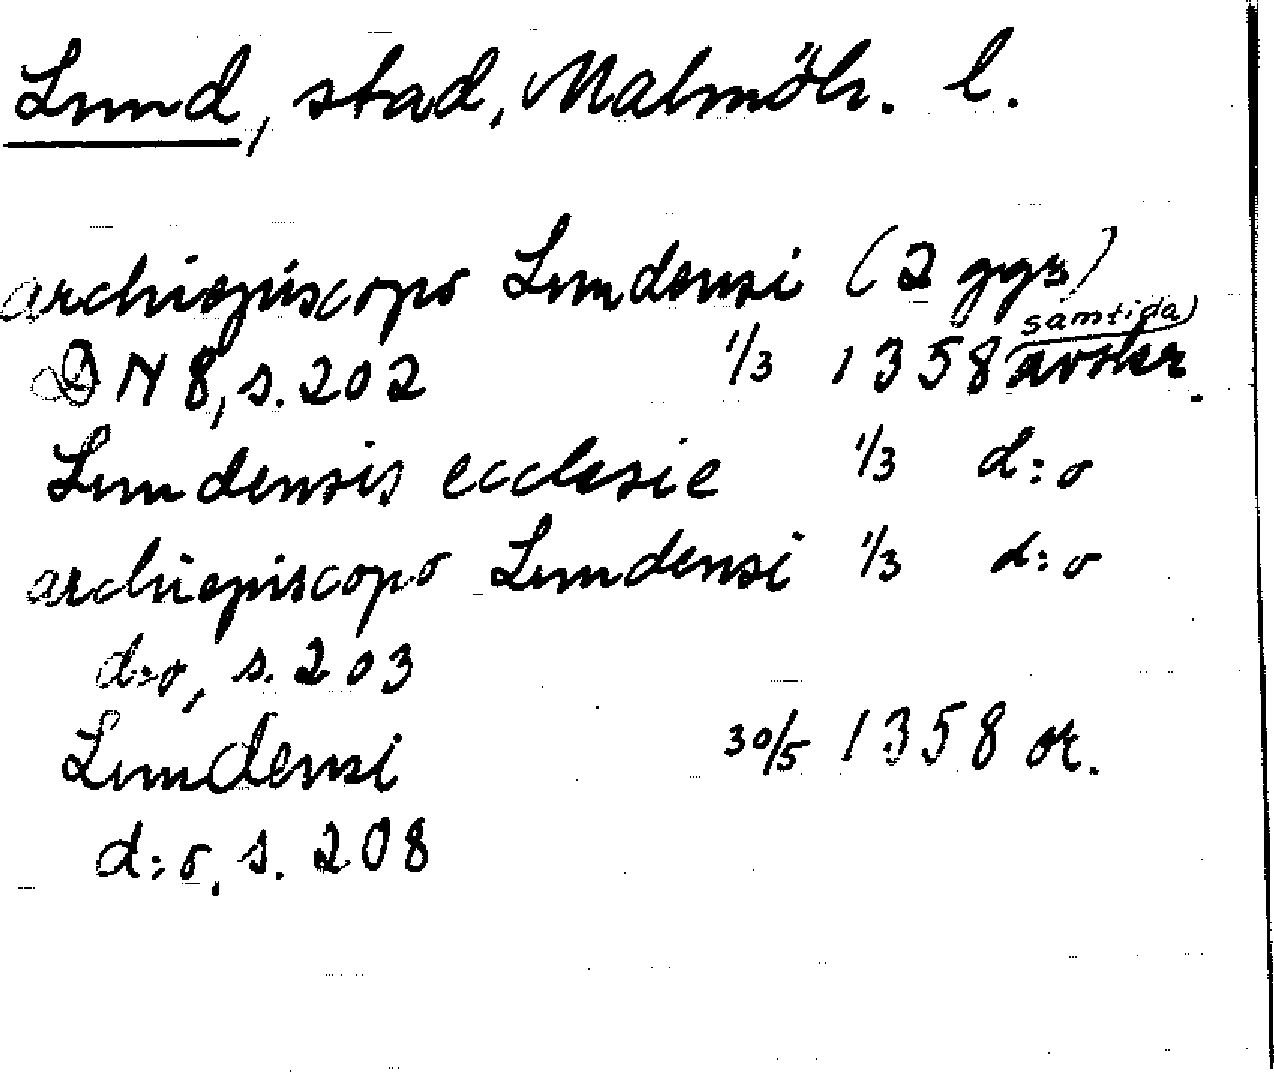 Lund, stad, Malmöh. l.
archiepiscopo Lundensi (2 ggr)
samtida
DN 8, s. 202 1/3 1358 avskr.
Lundensis ecclesie 1/3 d:o
archiepiscopo Lundensi 1/3 d:o
d:o, s. 203
Lundensi 30/5 1358 or.
d:o, s. 208